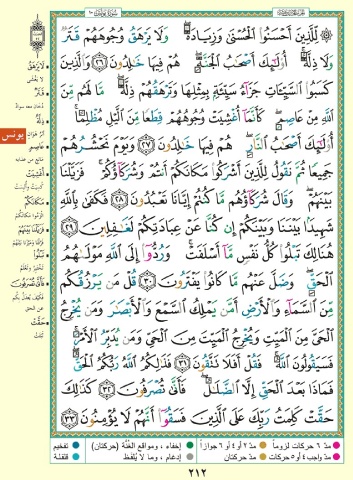 سورة يونس ١٠
لِّلَّذِينَ أَحْسَنُوا۟ ٱلْحُسْنَىٰ وَزِيَادَةٌ ۖ وَلَا يَرْهَقُ وُجُوهَهُمْ قَتَرٌ
وَلَا ذِلَّةٌ ۚ أُو۟لَـٰٓئِكَ أَصْحَـٰبُ ٱلْجَنَّةِ ۖ هُمْ فِيهَا خَـٰلِدُونَ ٢٦ وَٱلَّذِينَ
كَسَبُوا۟ ٱلسَّيِّـَٔاتِ جَزَآءُ سَيِّئَةٍۭ بِمِثْلِهَا وَتَرْهَقُهُمْ ذِلَّةٌ ۖ مَّا لَهُم مِّنَ
ٱللَّهِ مِنْ عَاصِمٍ ۖ كَأَنَّمَآ أُغْشِيَتْ وُجُوهُهُمْ قِطَعًا مِّنَ ٱلَّيْلِ مُظْلِمًا ۚ
أُو۟لَـٰٓئِكَ أَصْحَـٰبُ ٱلنَّارِ ۖ هُمْ فِيهَا خَـٰلِدُونَ ٢٧ وَيَوْمَ نَحْشُرُهُمْ
جَمِيعًا ثُمَّ نَقُولُ لِلَّذِينَ أَشْرَكُوا۟ مَكَانَكُمْ أَنتُمْ وَشُرَكَآؤُكُمْ ۚ فَزَيَّلْنَا
بَيْنَهُمْ ۖ وَقَالَ شُرَكَآؤُهُم مَّا كُنتُمْ إِيَّانَا تَعْبُدُونَ ٢٨ فَكَفَىٰ بِٱللَّهِ
شَهِيدًۢا بَيْنَنَا وَبَيْنَكُمْ إِن كُنَّا عَنْ عِبَادَتِكُمْ لَغَـٰفِلِينَ ٢٩
هُنَالِكَ تَبْلُوا۟ كُلُّ نَفْسٍ مَّآ أَسْلَفَتْ ۚ وَرُدُّوٓا۟ إِلَى ٱللَّهِ مَوْلَىٰهُمُ
ٱلْحَقِّ ۖ وَضَلَّ عَنْهُم مَّا كَانُوا۟ يَفْتَرُونَ ٣٠ قُلْ مَن يَرْزُقُكُم
مِّنَ ٱلسَّمَآءِ وَٱلْأَرْضِ أَمَّن يَمْلِكُ ٱلسَّمْعَ وَٱلْأَبْصَـٰرَ وَمَن يُخْرِجُ
ٱلْحَىَّ مِنَ ٱلْمَيِّتِ وَيُخْرِجُ ٱلْمَيِّتَ مِنَ ٱلْحَىِّ وَمَن يُدَبِّرُ ٱلْأَمْرَ ۚ
فَسَيَقُولُونَ ٱللَّهُ ۚ فَقُلْ أَفَلَا تَتَّقُونَ ٣١ فَذَٰلِكُمُ ٱللَّهُ رَبُّكُمُ ٱلْحَقُّ ۖ
فَمَاذَا بَعْدَ ٱلْحَقِّ إِلَّا ٱلضَّلَـٰلُ ۖ فَأَنَّىٰ تُصْرَفُونَ ٣٢ كَذَٰلِكَ
حَقَّتْ كَلِمَتُ رَبِّكَ عَلَى ٱلَّذِينَ فَسَقُوٓا۟ أَنَّهُمْ لَا يُؤْمِنُونَ ٣٣
لَا يَرْهَقُ
لا يغشى
قَتَرٌ
ذِلَّةٌ
يونس
عَاصِمٍ
أُغْشِيَتْ
مَكَانَكُمْ
فَزَيَّلْنَا بَيْنَهُمْ
تَبْلُوا
فَأَنَّى تُصْرَفُونَ
حَقَّتْ
مدّ ٦ حركات لزوماً
مدّ ٢ أو ٤ أو ٦ جوازاً
إخفاء، ومواقع الغُنَّة (حركتان)
تفخيم
مدّ واجب ٤ أو ٥ حركات
مدّ حركتان
إدغام، وما لا يُلفظ
قلقلة
٢١٢